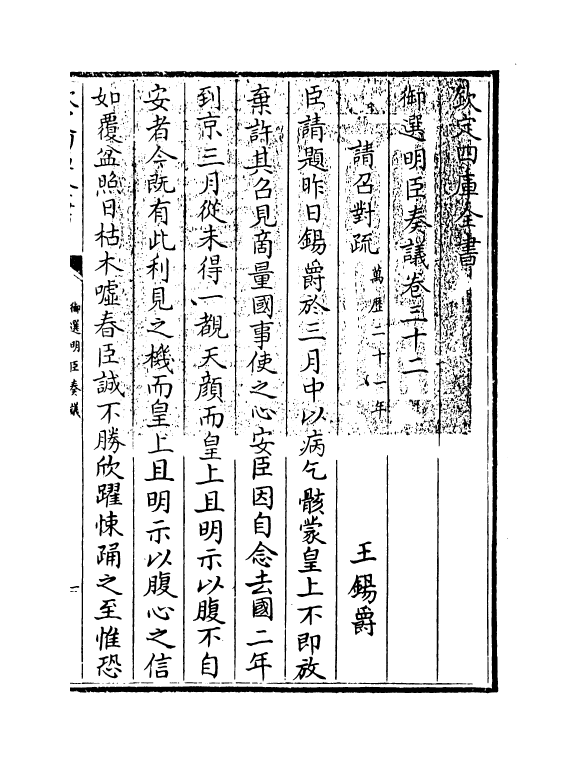 欽定四庫全書
御選明臣奏議卷三十二
請召對疏萬歷二十一年 王錫爵
臣請題昨日錫爵於三月中以病乞骸蒙皇上不即放
棄許其召見商量國事使之心安臣因自念去國二年
到京三月從未得一覩天顔而皇上且明示以腹不自
安者今既有此利見之機而皇上且明示以腹心之信
如覆盆照日枯木噓春臣誠不勝欣躍悚踊之至惟恐
御選明臣奏議
一